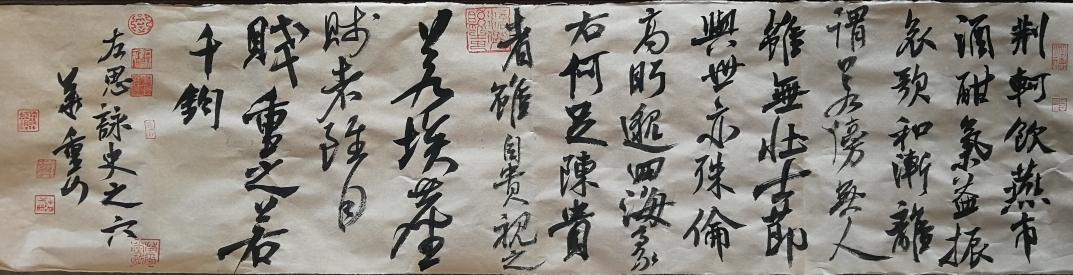 荆軻飲燕市
酒酣氣益振
哀歌和漸離
謂若傍無人
雖無壯士節
與世亦殊倫
高眄邈四海豪
右何足陳貴
者雖自貴視之
若埃塵
賤者雖自
賤重之若
千鈞
左思詠史之六